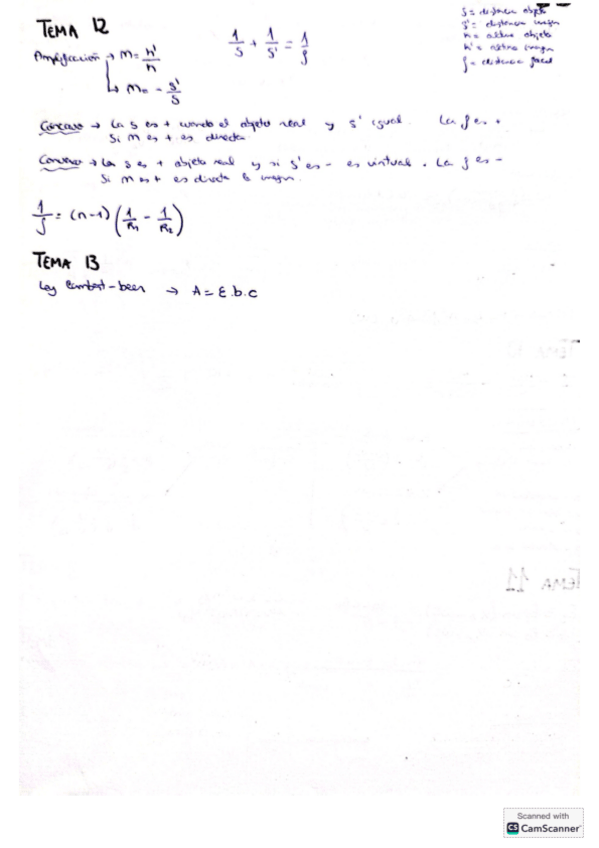 TEMA 12
Amplificación → m = h'/h
↳ m = - s'/s
1/s + 1/s' = 1/f
s = distancia objeto
s' = distancia imagen
h = altura objeto
h' = altura imagen
f = distancia focal
Cóncavo → La s es + cuando el objeto real y s' igual. La f es +
Si m es + es directa
Convexo → La s es + objeto real y si s' es - es virtual. La f es -
Si m es + es directa la imagen.
1/f = (n-1) (1/R1 - 1/R2)
TEMA 13
Ley Lambert-beer → A = ε.b.c
TEMA 11
Scanned with
CS CamScanner